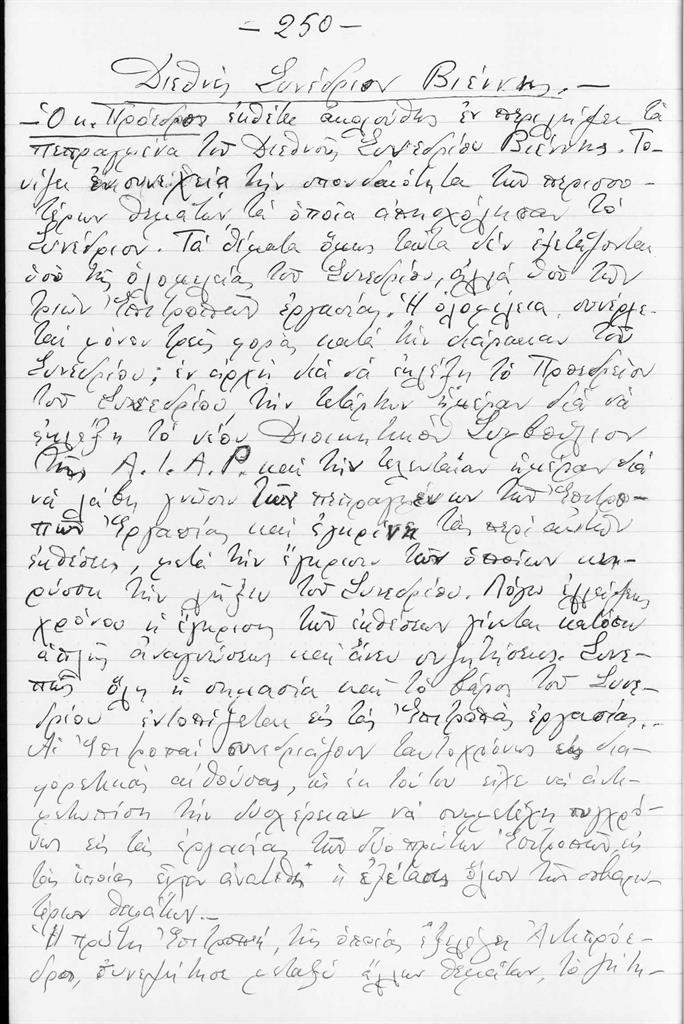 - 250 -
Διεθνὲς Συνέδριον Βιέννης. -
- Ὁ κ. Πρόεδρος ἐκθέτει ἀκολούθως ἐν περιλήψει τὰ
πεπραγμένα τοῦ Διεθνοῦς Συνεδρίου Βιέννης. Το-
νίζει ἐν συνεχείᾳ τὴν σπουδαιότητα τῶν περισσο-
τέρων θεμάτων τὰ ὁποῖα ἀπησχόλησαν τὸ
Συνέδριον. Τὰ θέματα ὅμως ταῦτα δὲν ἐξετάζονται
ὑπὸ τῆς ὁλομελείας τοῦ Συνεδρίου, ἀλλὰ ὑπὸ τῶν
τριῶν Ἐπιτροπῶν ἐργασίας. Ἡ ὁλομέλεια, συνέρχε-
ται μόνον τρεῖς φορὰς κατὰ τὴν διάρκειαν τοῦ
Συνεδρίου; ἐν ἀρχῇ διὰ νὰ ἐκλέξῃ τὸ Προεδρεῖον
τοῦ Συνεδρίου, τὴν τετάρτην ἡμέραν διὰ νὰ
ἐκλέξῃ τὸ νέον Διοικητικὸν Συμβούλιον
τῆς A.I.A.P. καὶ τὴν τελευταίαν ἡμέραν διὰ
νὰ λάβῃ γνῶσιν τῶν πεπραγμένων τῶν Ἐπιτρο-
πῶν Ἐργασίας καὶ ἐγκρίνῃ τὰς περὶ αὐτῶν
ἐκθέσεις, μετὰ τὴν ἔγκρισιν τῶν ὁποίων κη-
ρύσσει τὴν λῆξιν τοῦ Συνεδρίου. Λόγῳ ἐλλείψεως
χρόνου ἡ ἔγκρισις τῶν ἐκθέσεων γίνεται κατόπιν
ἁπλῆς ἀναγνώσεως καὶ ἄνευ συζητήσεως. Συνε-
πῶς ὅλη ἡ σημασία καὶ τὸ βάρος τοῦ Συνε-
δρίου ἐντοπίζεται εἰς τὰς Ἐπιτροπὰς ἐργασίας. -
Αἱ Ἐπιτροπαὶ συνεδριάζουν ταυτοχρόνως εἰς δια-
φορετικὰς αἰθούσας, ὡς ἐκ τούτου εἶχε νὰ ἀντι-
μετωπίσῃ τὴν δυσχέρειαν νὰ συμμετέχῃ συγχρό-
νως εἰς τὰς ἐργασίας τῶν δύο πρώτων Ἐπιτροπῶν, εἰς
τὰς ὁποίας εἶχεν ἀνατεθῆ ἡ ἐξέτασις ὅλων τῶν σοβαρω-
τέρων θεμάτων. -
Ἡ πρώτη Ἐπιτροπή, τῆς ὁποίας ἐξελέγη Ἀντιπρόε-
δρος, συνεζήτησε μεταξὺ ἄλλων θεμάτων, τὸ ζήτη-